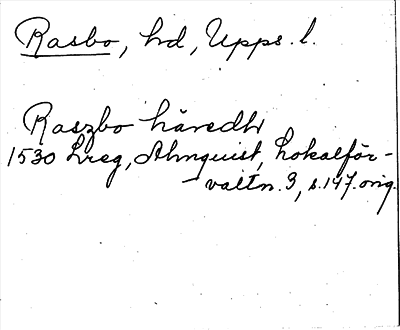 Rasbo, hd, Upps. l.
Raszbo häredhr
1530 Lreg, Almquist, Lokalför-
valtn. 3, s. 147. orig.